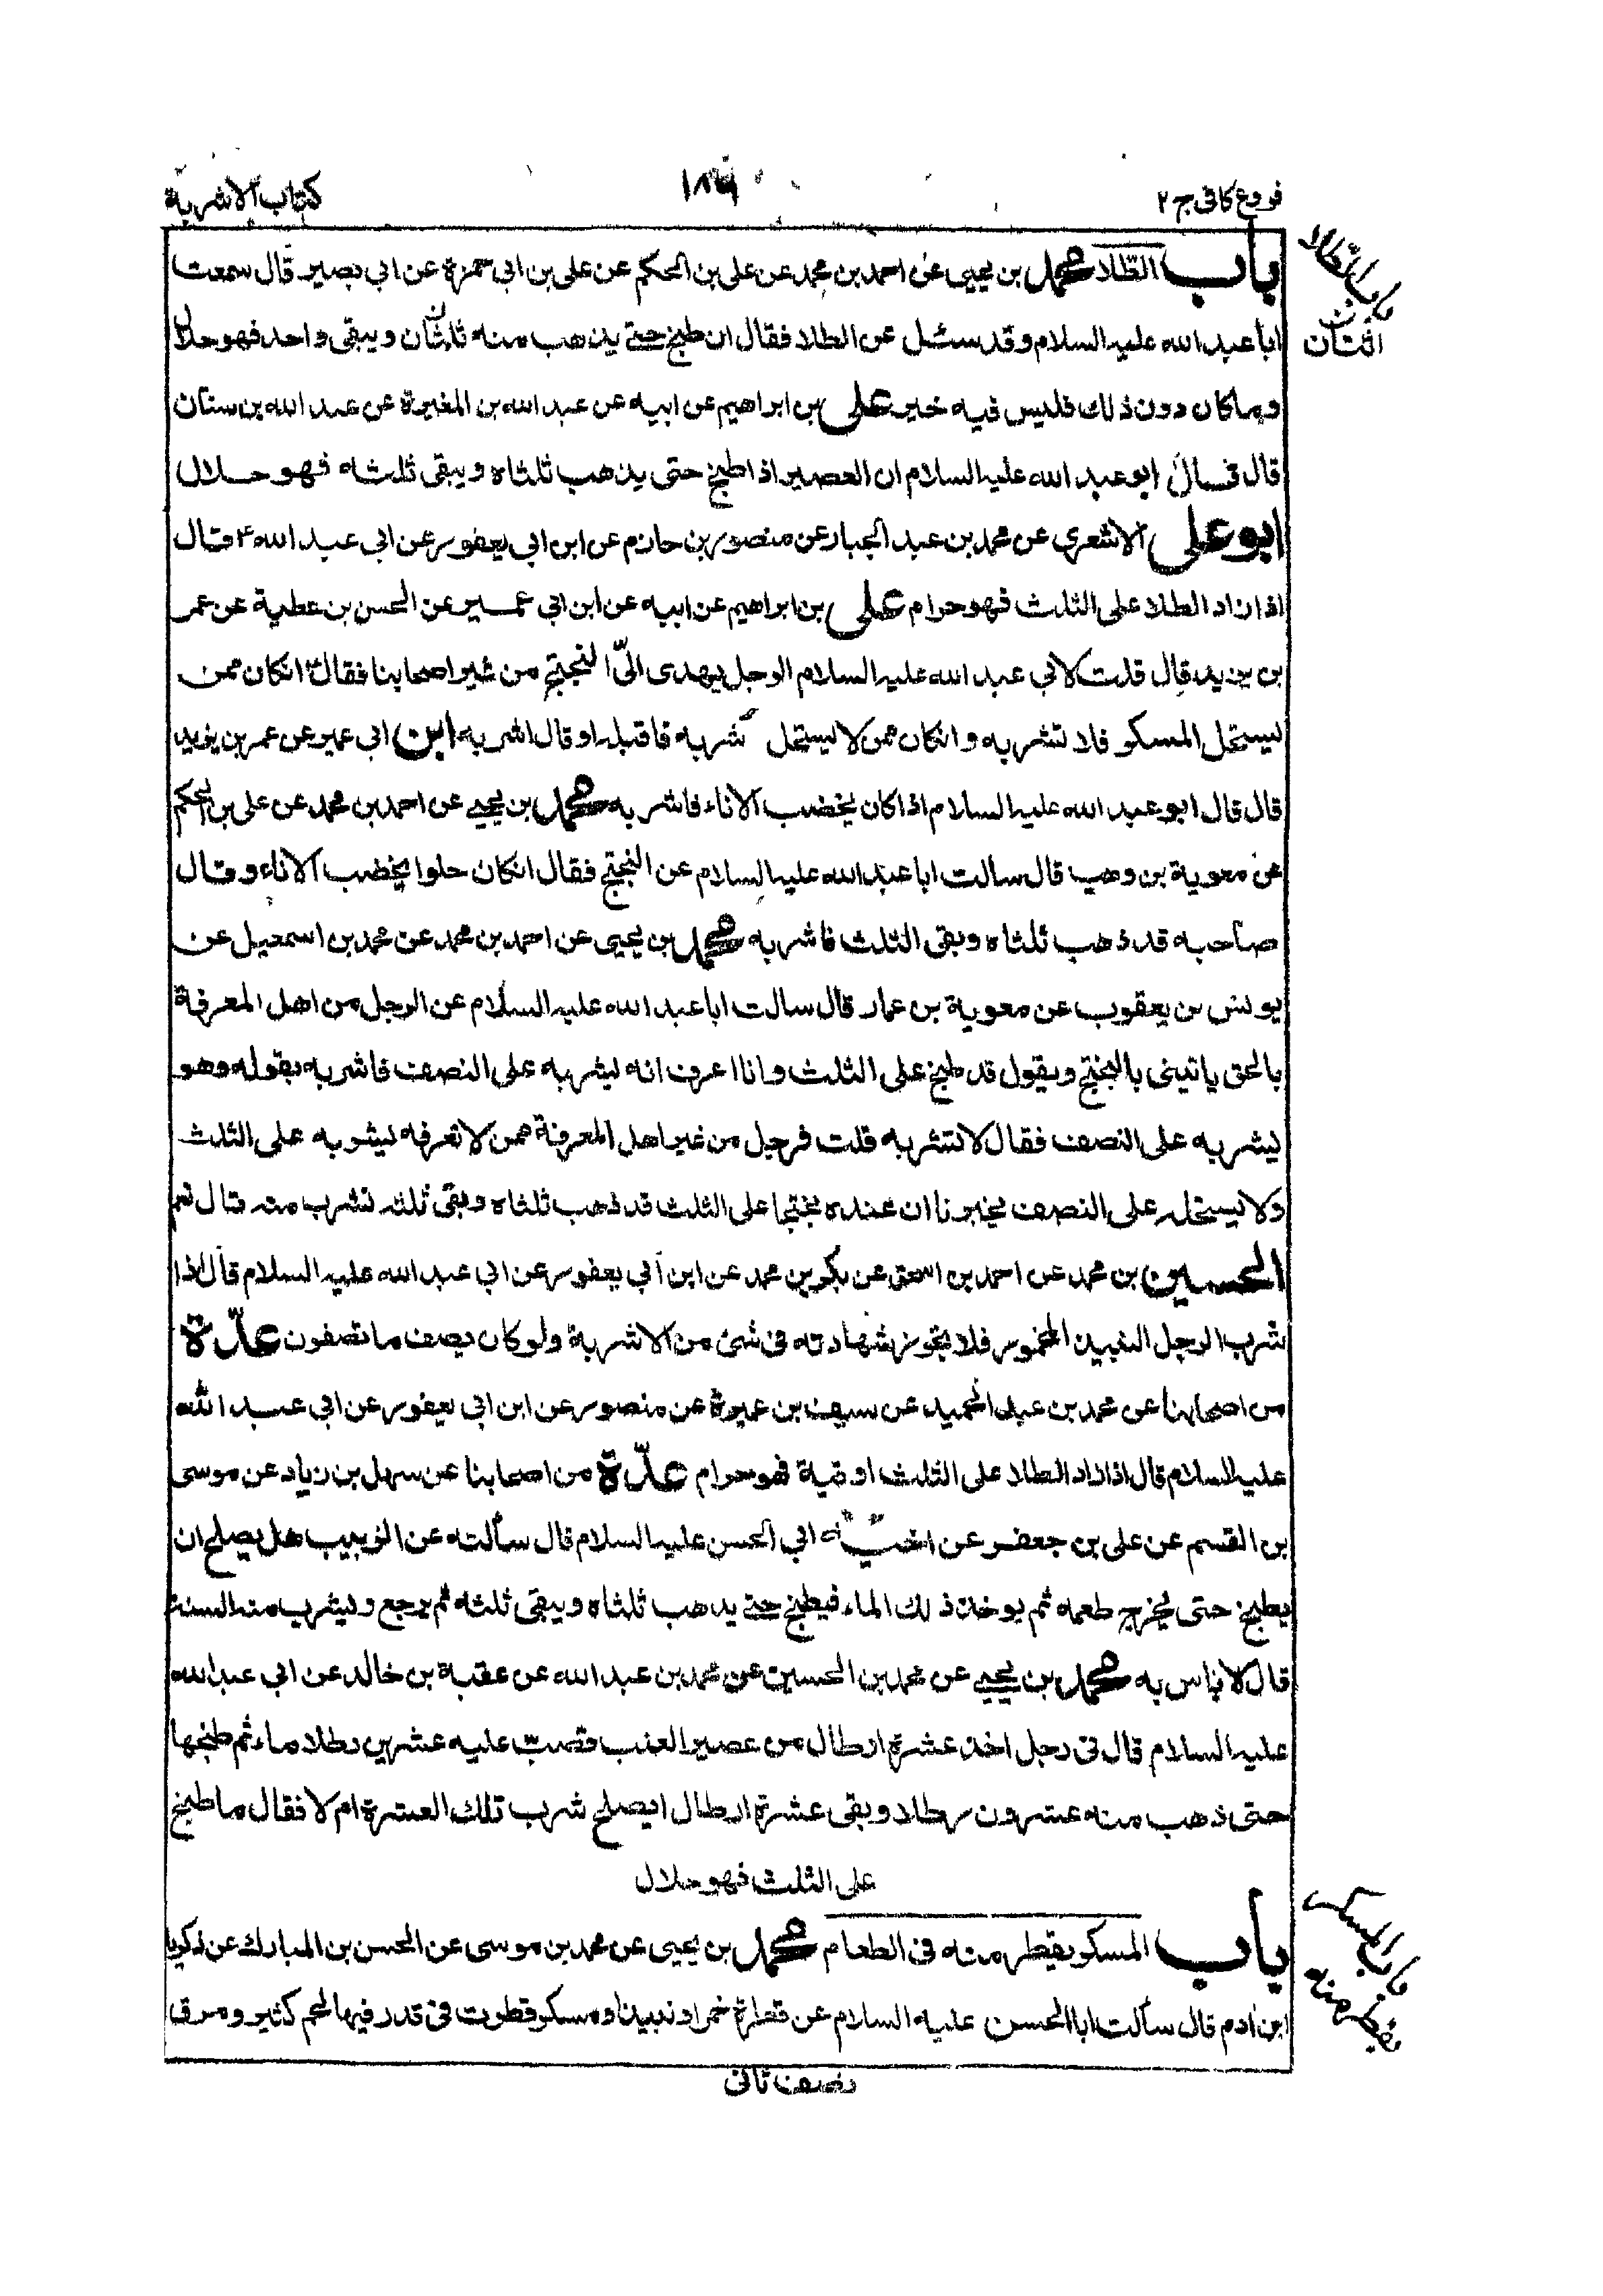 فروع كافى ج ٢
كتاب الاشربة
باب الطّلا محمد بن يحيى عن احمد بن محمد عن على بن الحكم عن على بن ابى حمزة عن ابى بصير قال سمعت
ابا عبد الله عليه السلام وقد سئل عن الطلا فقال ان طبخ حتى يذهب منه ثلثان ويبقى واحد فهو حلال
وما كان دون ذلك فليس فيه خير على بن ابراهيم عن ابيه عن عبد الله بن المغيرة عن عبد الله بن سنان
قال قال ابو عبد الله عليه السلام ان العصير اذا طبخ حتى يذهب ثلثاه ويبقى ثلثه فهو حلال
ابو على الاشعرى عن محمد بن عبد الجبار عن منصور بن حازم عن ابن ابى يعفور عن ابى عبد الله ع قال
اذا زاد الطلا على الثلث فهو حرام على بن ابراهيم عن ابيه عن ابن ابى عمير عن الحسن بن عطية عن عمر
بن يزيد قال قلت لابى عبد الله عليه السلام الرجل يهدى الىّ البختج من غير اصحابنا فقال انكان ممن
يستحل المسكر فلا تشربه وانكان ممن لا يستحل شربه فاقبله او قال اشربه ابن ابى عمير عن عمر بن يزيد
قال قال ابو عبد الله عليه السلام اذا كان يخضب الاناء فاشربه محمد بن يحيى عن احمد بن محمد عن على بن الحكم
عن معوية بن وهب قال سالت ابا عبد الله عليه السلام عن البختج فقال انكان حلوا يخضب الاناء وقال
صاحبه قد ذهب ثلثاه وبقى الثلث فاشربه محمد بن يحيى عن احمد بن محمد عن محمد بن اسمعيل عن
يونس بن يعقوب عن معوية بن عمار قال سالت ابا عبد الله عليه السلام عن الرجل من اهل المعرفة
بالحق ياتينى بالبختج ويقول قد طبخ على الثلث وانا اعرف انه يشربه على النصف فاشربه بقوله وهو
يشربه على النصف فقال لا تشربه قلت فرجل من غير اهل المعرفة ممن لا نعرفه يشربه على الثلث
ولا يستحله على النصف يخبرنا ان عنده بختجا على الثلث قد ذهب ثلثاه وبقى ثلثه نشرب منه قال نعم
الحسين بن محمد عن احمد بن اسحق عن بكر بن محمد عن ابن ابى يعفور عن ابى عبد الله عليه السلام قال اذا
شرب الرجل النبيذ المخمور فلا يجوز شهادته فى شئ من الاشربة ولو كان يصف ما تصفون عدّة
من اصحابنا عن محمد بن عبد الحميد عن سيف بن عميرة عن منصور عن ابن ابى يعفور عن ابى عبد الله
عليه السلام قال اذا زاد الطلا على الثلث اوقية فهو حرام عدّة من اصحابنا عن سهل بن زياد عن موسى
بن القسم عن على بن جعفر عن اخيه ابى الحسن عليه السلام قال سألته عن الزبيب هل يصلح ان
يطبخ حتى يخرج طعمه ثم يوخذ ذلك الماء فيطبخ حتى يذهب ثلثاه ويبقى ثلثه ثم يرفع ويشرب منه السنة
قال لا باس به محمد بن يحيى عن محمد بن الحسين عن محمد بن عبد الله عن عقبة بن خالد عن ابى عبد الله
عليه السلام قال فى رجل اخذ عشرة ارطال من عصير العنب فصبّ عليه عشرين رطلا ماء ثم طبخها
حتى ذهب منه عشرون رطلا وبقى عشرة ارطال ايصلح شرب تلك العشرة ام لا فقال ما طبخ
على الثلث فهو حلال
باب المسكر يقطر منه فى الطعام محمد بن يحيى عن محمد بن موسى عن الحسن بن المبارك عن زكريا
ابن ادم قال سألت ابا الحسن عليه السلام عن قطرة خمر او نبيذ او مسكر قطرت فى قدر فيها لحم كثير ومرق
نصف ثانى
باب الطلا
باب المسكر
يقطر منه